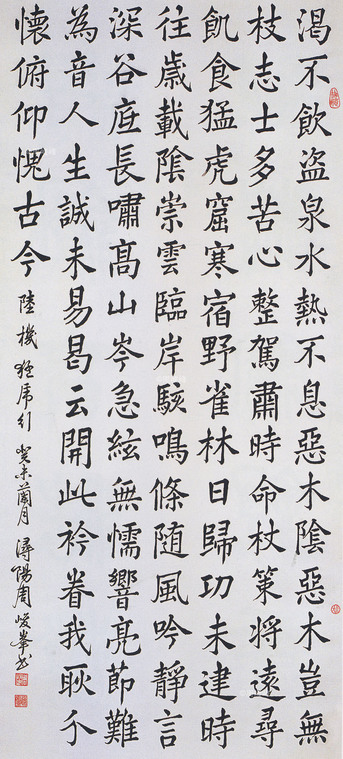 渴不飲盜泉水熱不息惡木陰惡木豈無
枝志士多苦心整駕肅時命杖策將遠尋
飢食猛虎窟寒宿野雀林日歸功未建時
往歲載陰崇雲臨岸駭鳴條随風吟靜言
深谷底長嘯高山岑急絃無懦響亮節難
為音人生誠未易曷云開此衿眷我耿介
懷俯仰愧古今 陸機 猛虎行 癸未蘭月 潯陽周峻峯书